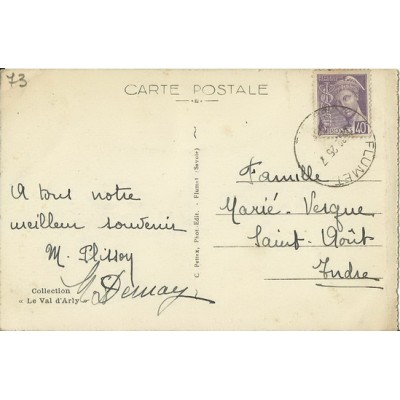 73
CARTE POSTALE
40
FLUMET
A tous notre
meilleur souvenir
M. Plissoy
G Demay
Collection
« Le Val d'Arly »
C. Perret, Phot.-Edit. - Flumet (Savoie)
Famille
Marié-Vesque
Saint-Août
Indre